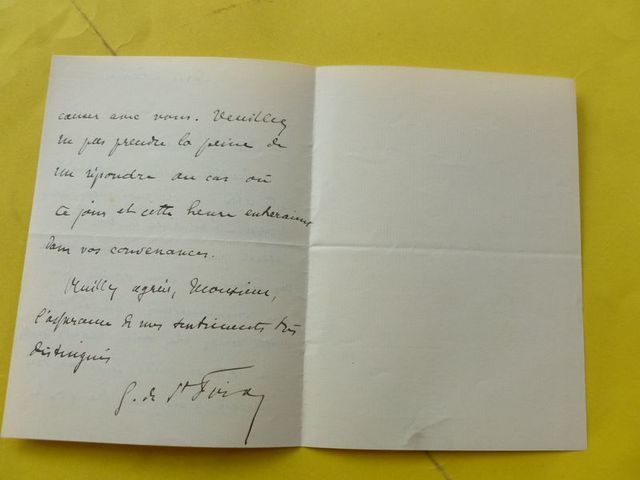 causer avec vous. Veuillez
ne pas prendre la peine de
me répondre au cas où
ce jour et cette heure entreraient
dans vos convenances.
Veuillez agréer, Monsieur,
l'assurance de mes sentiments très
distingués
G. de St Foix